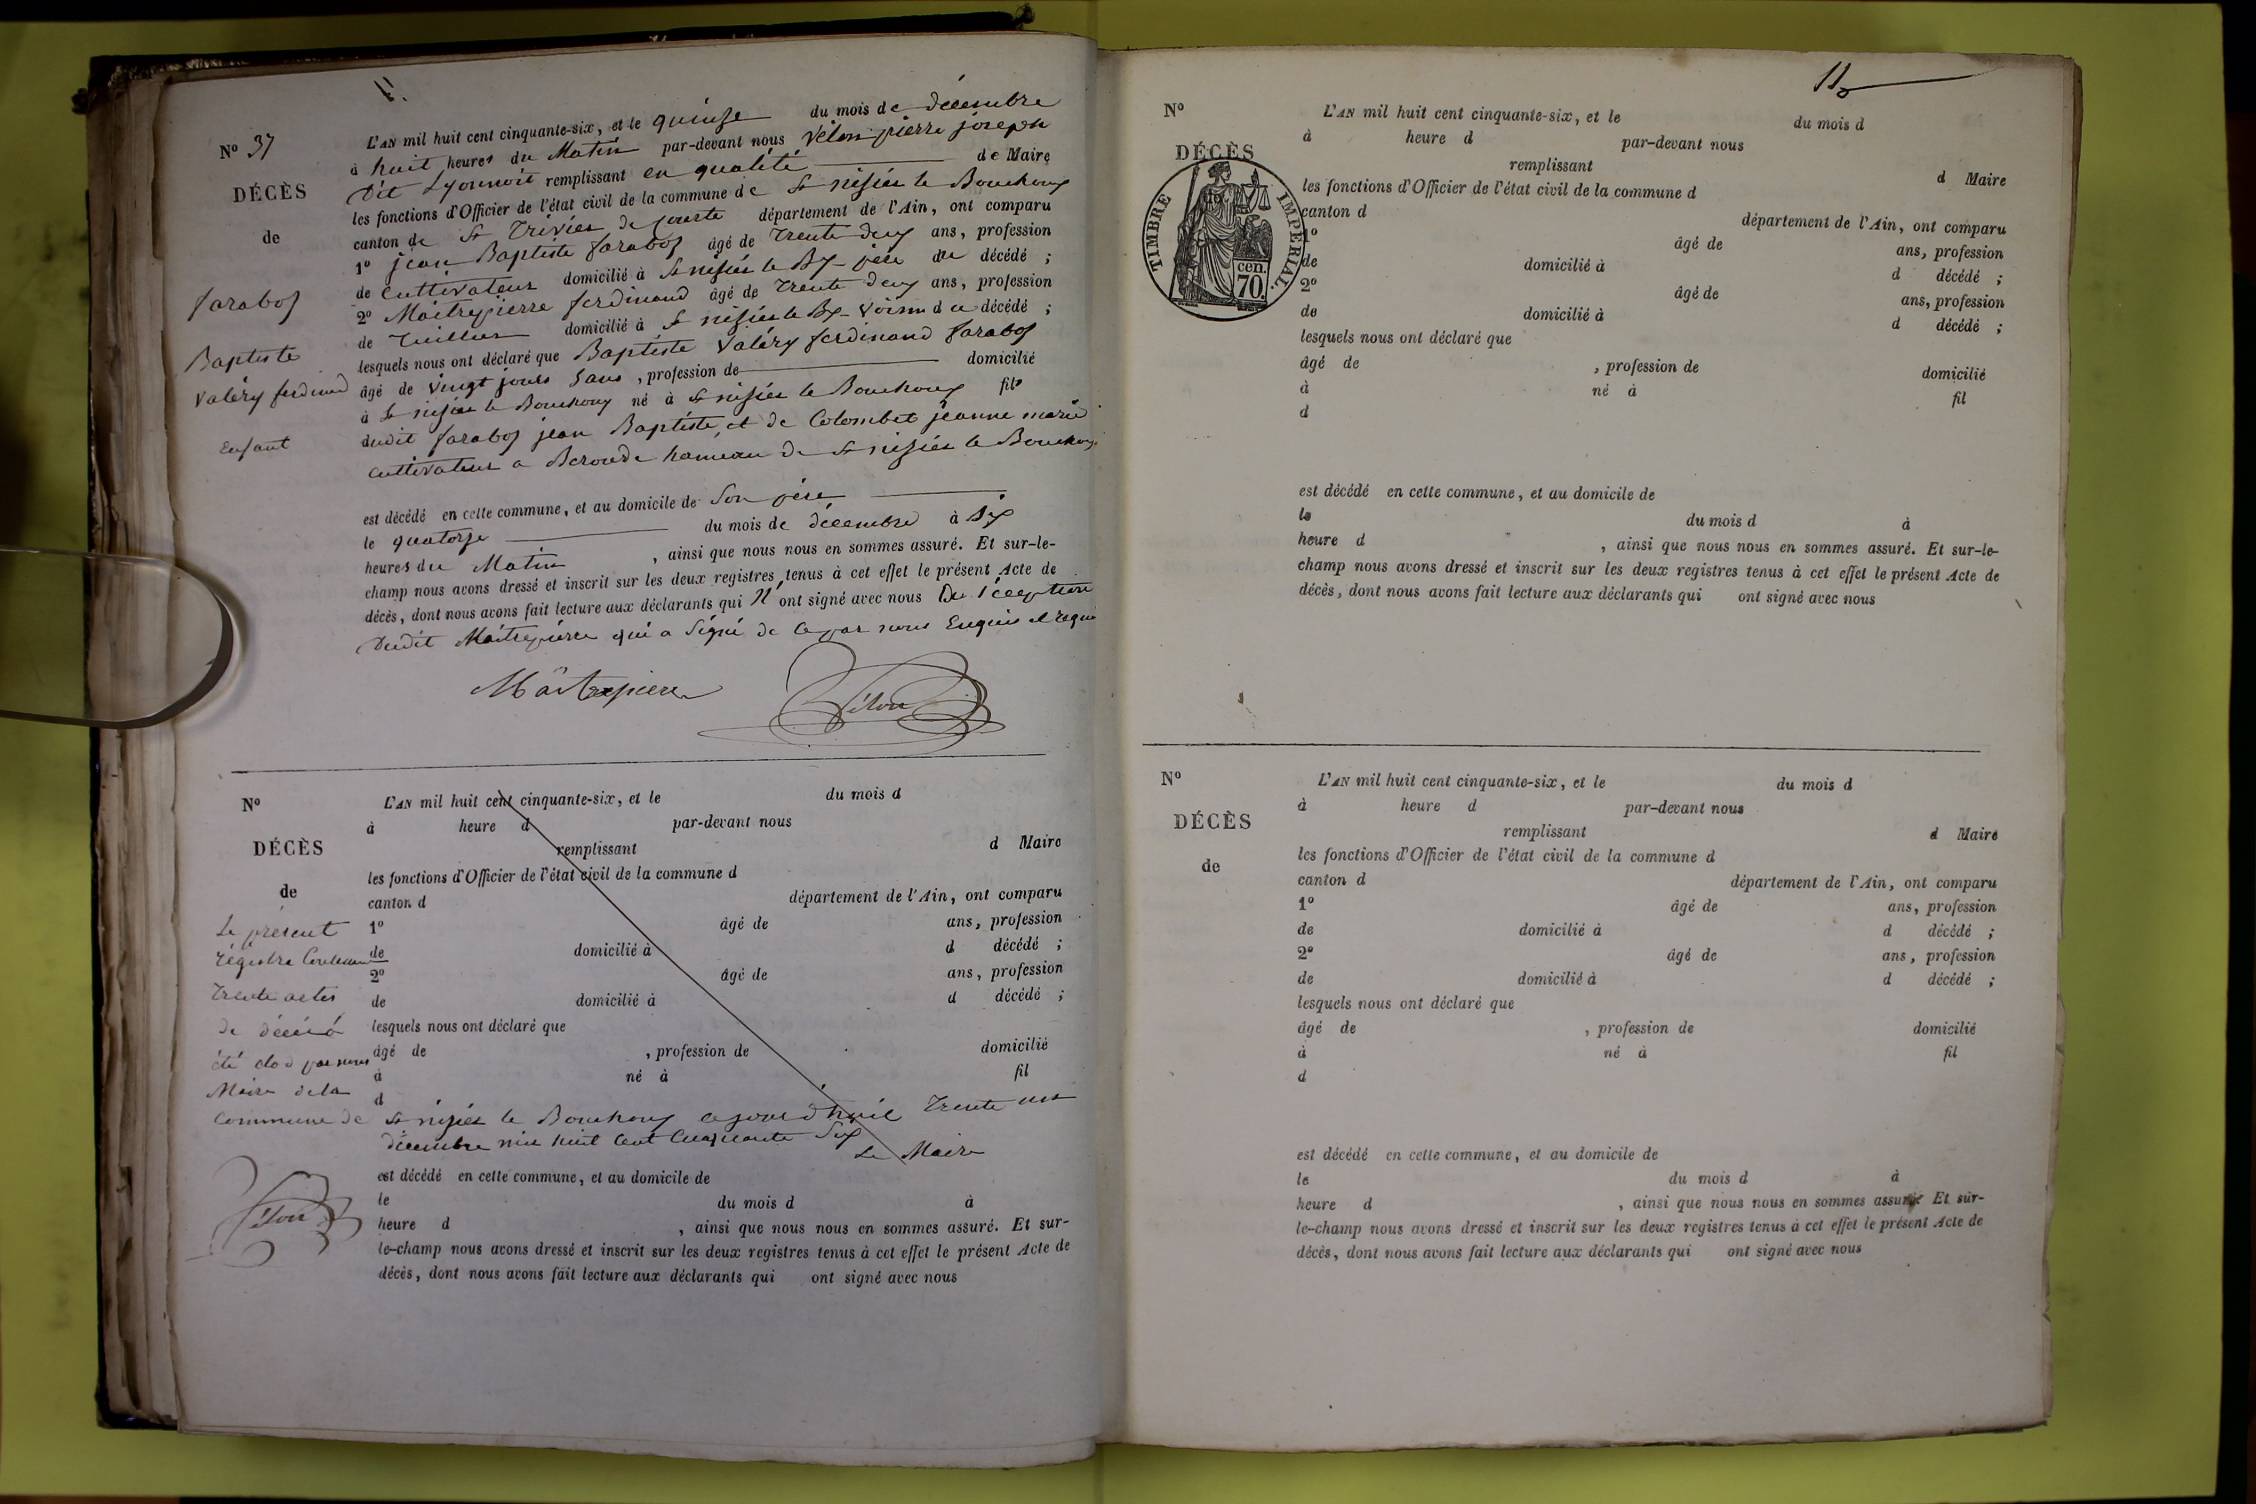 N° 37
DÉCÈS
de
farabos
Baptiste
Valéry ferdinand
enfant
L'AN mil huit cent cinquante-six, et le quinze du mois de décembre
à huit heures du Matin par-devant nous Vélon pierre joseph
dit Lyonnois remplissant en qualité de Maire
les fonctions d'Officier de l'état civil de la commune de St nizier le Bouchoux
canton de St Trivier de Courte département de l'Ain, ont comparu
1° jean Baptiste farabos âgé de trente deux ans, profession
de cultivateur domicilié à St nizier le Bx père du décédé ;
2° Maitrepierre ferdinand âgé de trente deux ans, profession
de domicilié à St nizier le Bx voisin du décédé ;
lesquels nous ont déclaré que Baptiste Valéry ferdinand farabos
âgé de vingt jours sans , profession de domicilié
à St nizier le Bouchoux né à St nizier le Bouchoux fils
dudit farabos jean Baptiste et de Colombet jeanne marie
cultivateur a Beroude hameau de St nizier le Bouchoux
est décédé en cette commune, et au domicile de Son père
le quatorze du mois de décembre à Six
heures du Matin , ainsi que nous nous en sommes assuré. Et sur-le-
champ nous avons dressé et inscrit sur les deux registres tenus à cet effet le présent Acte de
décès, dont nous avons fait lecture aux déclarants qui N' ont signé avec nous De l'éception
Dudit Maitrepierre qui a Signé de ce par nous Enquis et requis
Maitrepierre Vélon
N°
DÉCÈS
de
Le présent
régistre Contenant
trente actes
de décès à
été clos par nous
Maire de la
commune de
L'AN mil huit cent cinquante-six, et le du mois d
à heure d par-devant nous
remplissant d Maire
les fonctions d'Officier de l'état civil de la commune d
canton d département de l'Ain, ont comparu
1° âgé de ans, profession
de domicilié à d décédé ;
2° âgé de ans, profession
de domicilié à d décédé ;
lesquels nous ont déclaré que
âgé de , profession de domicilié
à né à fil
d
St nizier le Bouchoux ce jourd'huil trente un
décembre mil huit Cent Cinquante Six
Le Maire
Vélon
est décédé en cette commune, et au domicile de
le du mois d à
heure d , ainsi que nous nous en sommes assuré. Et sur-
le-champ nous avons dressé et inscrit sur les deux registres tenus à cet effet le présent Acte de
décès, dont nous avons fait lecture aux déclarants qui ont signé avec nous
N°
DÉCÈS
de
TIMBRE IMPERIAL.
70 cen.
L'AN mil huit cent cinquante-six, et le du mois d
à heure d par-devant nous
remplissant d Maire
les fonctions d'Officier de l'état civil de la commune d
canton d département de l'Ain, ont comparu
1° âgé de ans, profession
de domicilié à d décédé ;
2° âgé de ans, profession
de domicilié à d décédé ;
lesquels nous ont déclaré que
âgé de , profession de domicilié
à né à fil
d
est décédé en cette commune, et au domicile de
le du mois d à
heure d , ainsi que nous nous en sommes assuré. Et sur-le-
champ nous avons dressé et inscrit sur les deux registres tenus à cet effet le présent Acte de
décès, dont nous avons fait lecture aux déclarants qui ont signé avec nous
N°
DÉCÈS
de
L'AN mil huit cent cinquante-six, et le du mois d
à heure d par-devant nous
remplissant d Maire
les fonctions d'Officier de l'état civil de la commune d
canton d département de l'Ain, ont comparu
1° âgé de ans, profession
de domicilié à d décédé ;
2° âgé de ans, profession
de domicilié à d décédé ;
lesquels nous ont déclaré que
âgé de , profession de domicilié
à né à fil
d
est décédé en cette commune, et au domicile de
le du mois d à
heure d , ainsi que nous nous en sommes assuré. Et sur-
le-champ nous avons dressé et inscrit sur les deux registres tenus à cet effet le présent Acte de
décès, dont nous avons fait lecture aux déclarants qui ont signé avec nous